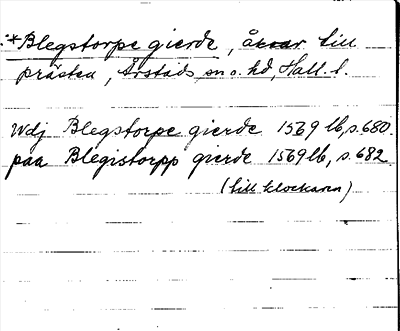 *Blegstorpe gierde, åkrar till
prästen, Årstads sn o. hd, Hall. l.
Wdj Blegstorpe gierde 1569 lb, s. 680.
paa Blegistorpp gierde 1569 lb, s. 682
(till klockaren)